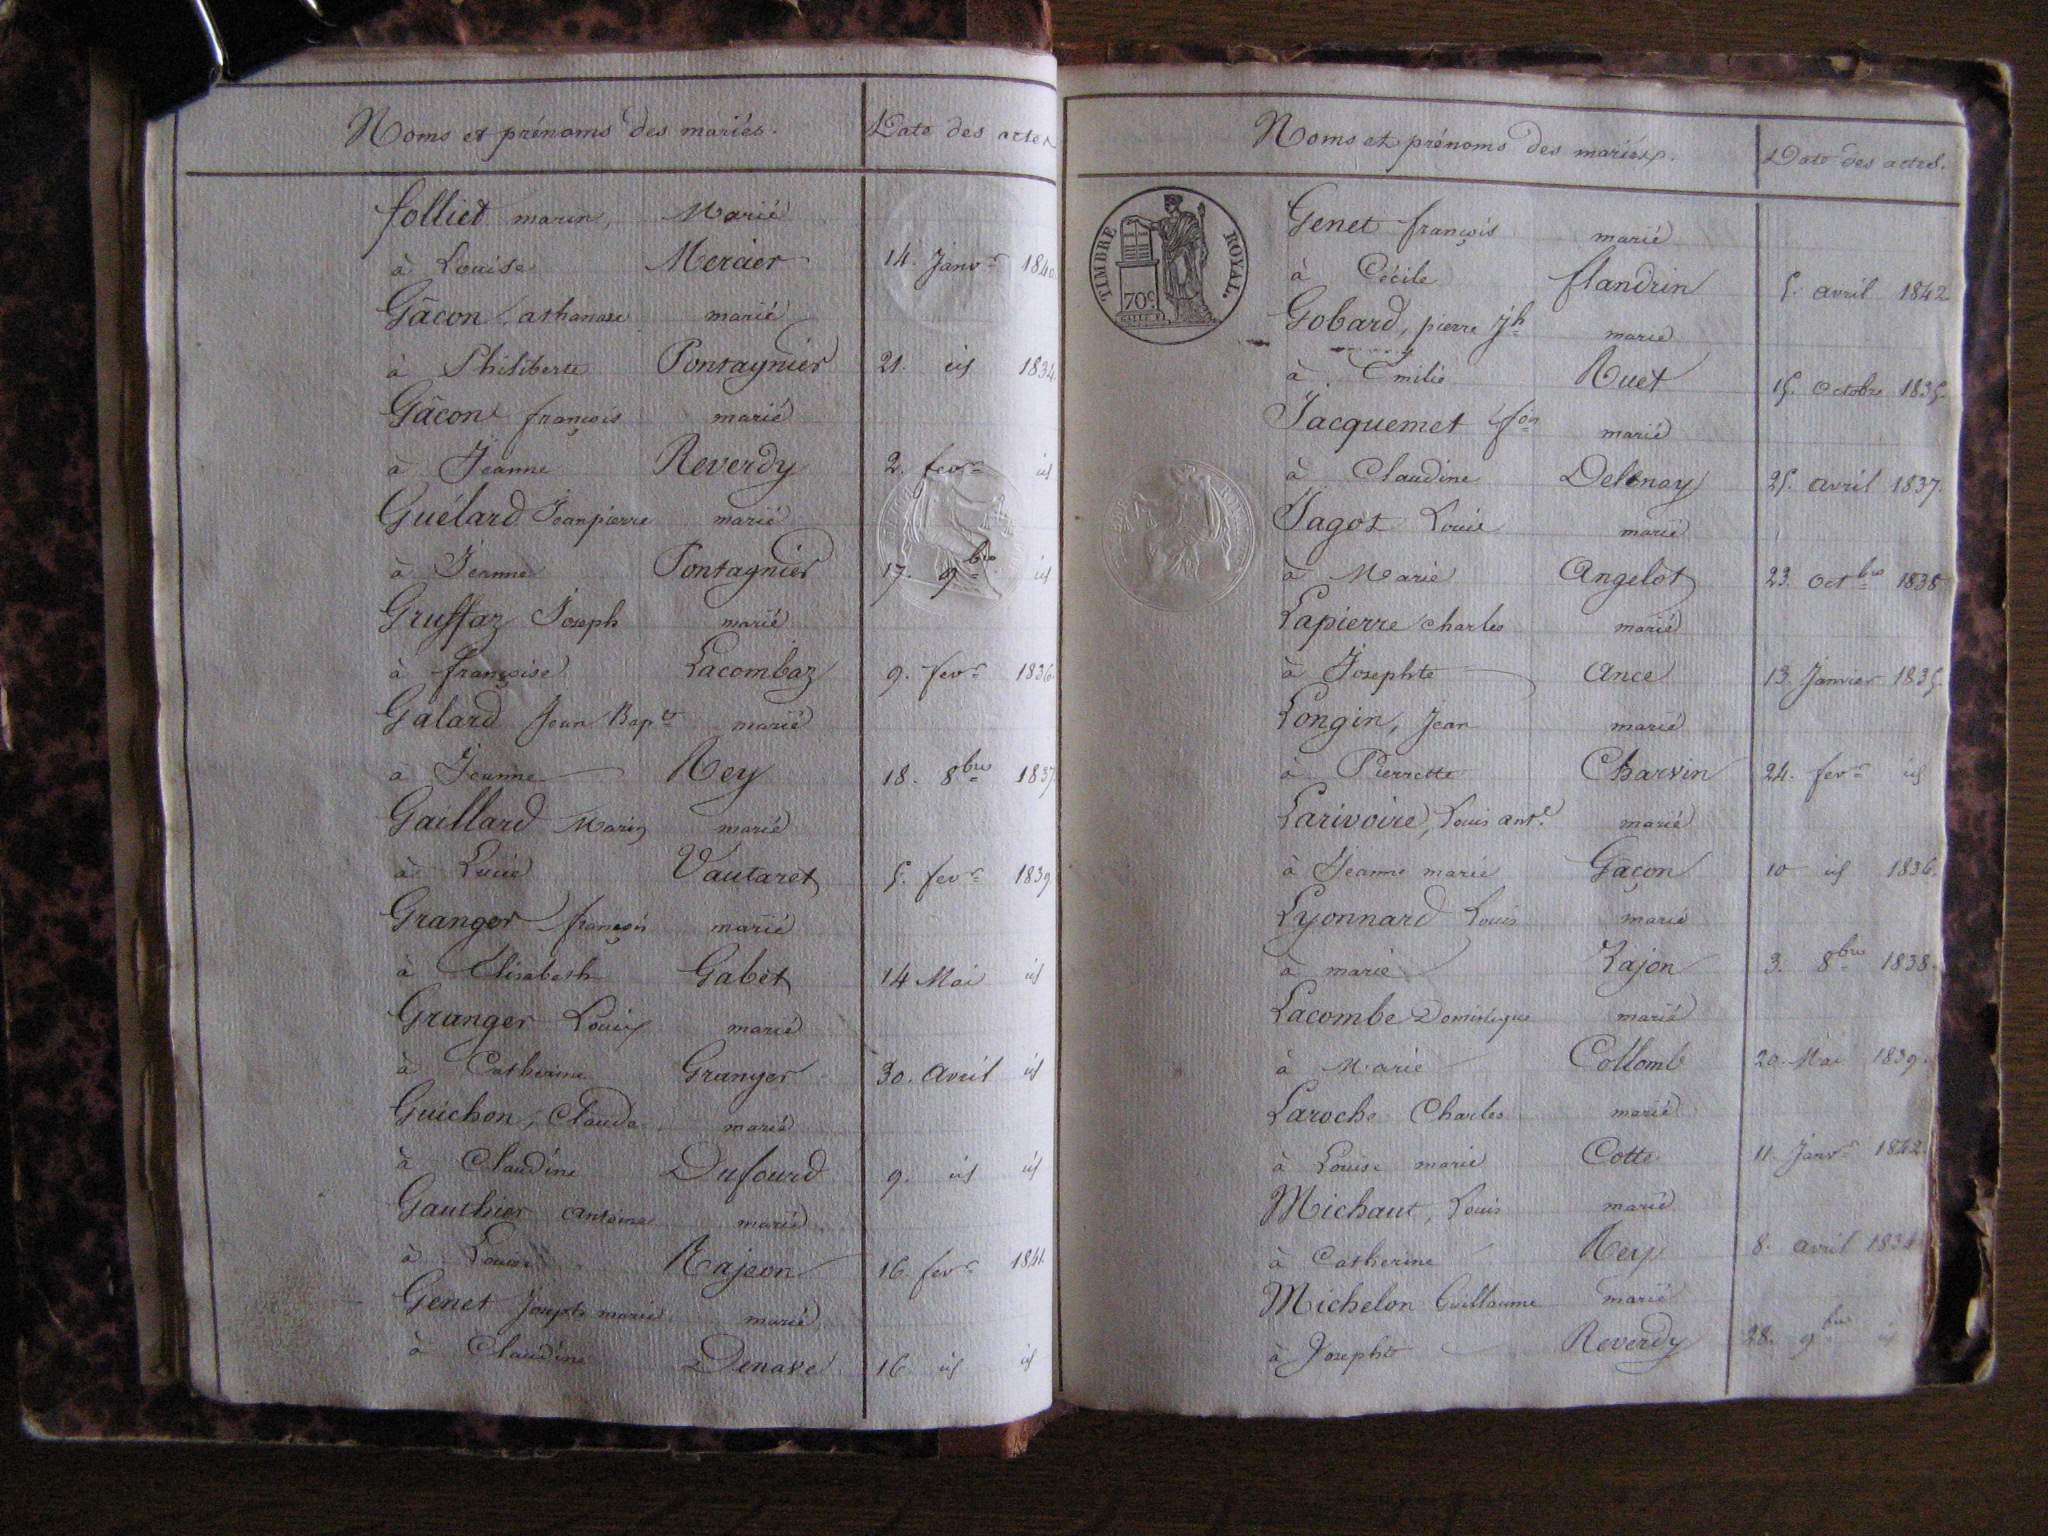 Noms et prénoms des mariés. Date des actes
folliet marin, Marié
à Louise Mercier 14. Janvr 1840
Gâcon athanase marié
à Philiberte Pontagnier 21. id 1834.
Gâcon françois marié
à Jeanne Reverdy 2. fevr id
Guélard Jeanpierre marié
à Jeanne Pontagnier 17. 9bre id
Gruffaz Joseph marié
à françoise Lacombaz 9. fevr 1836.
Galard Jean Bapte marié
à Jeanne Rey 18. 8bre 1837
Gaillard Marin marié
à Lucie Vautaret 5. fevr 1839
Granger françois marié
à Elisabeth Gabet 14 Mai id
Granger Louis marié
à Catherine Granger 30. avril id
Guichon, Claude marié
à Claudine Dufourd 9. id id
Gauthier antoine marié
à Louise Rajeon 16. fevr 1841.
Genet Joseph marie marié
à Claudine Denave 16 id id
Noms et prénoms des mariés. Date des actes.
TIMBRE ROYAL.
70c
Genet françois marié
à Cécile flandrin 5. avril 1842
Gobard, pierre Jh marié
à Emilie Ruet 15. Octobre 1835.
Jacquemet fois marié
à Claudine Delenay 25. avril 1837.
Jagot Louis marié
à Marie Angelot 23. octbre 1838
Lapierre charles marié
à Josephte ance 13 Janvier 1835
Longin, Jean marié
à Pierrette Charvin 24. fevr id
Larivoire, Louis ante marié
à Jeanne marie Gâçon 10 id 1836.
Lyonnard Louis marié
à marie Rajon 3. 8bre 1838.
Lacombe Dominique marié
à Marie Collomb 20. Mai 1839.
Laroche Charles marié
à Louise marie Cotte 11. Janvr 1842.
Michaut, Louis marié
à Catherine Rey 8. avril 1834
Michelon Guillaume marié
à Josephte Reverdy 28. 9bre id